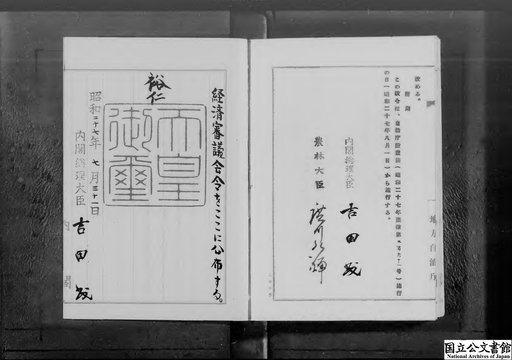 定める。
附則
この政令は、自治庁設置法(昭和二十七年法律第二百六十一号)施行
の日(昭和二十七年八月一日)から施行する。
内閣総理大臣 吉田茂
農林大臣 廣川弘禅
地方自治庁
経済審議会令をここに公布する。
裕仁
天皇
御璽
昭和二十七年七月三十一日
内閣総理大臣 吉田茂
国立公文書館
National Archives of Japan